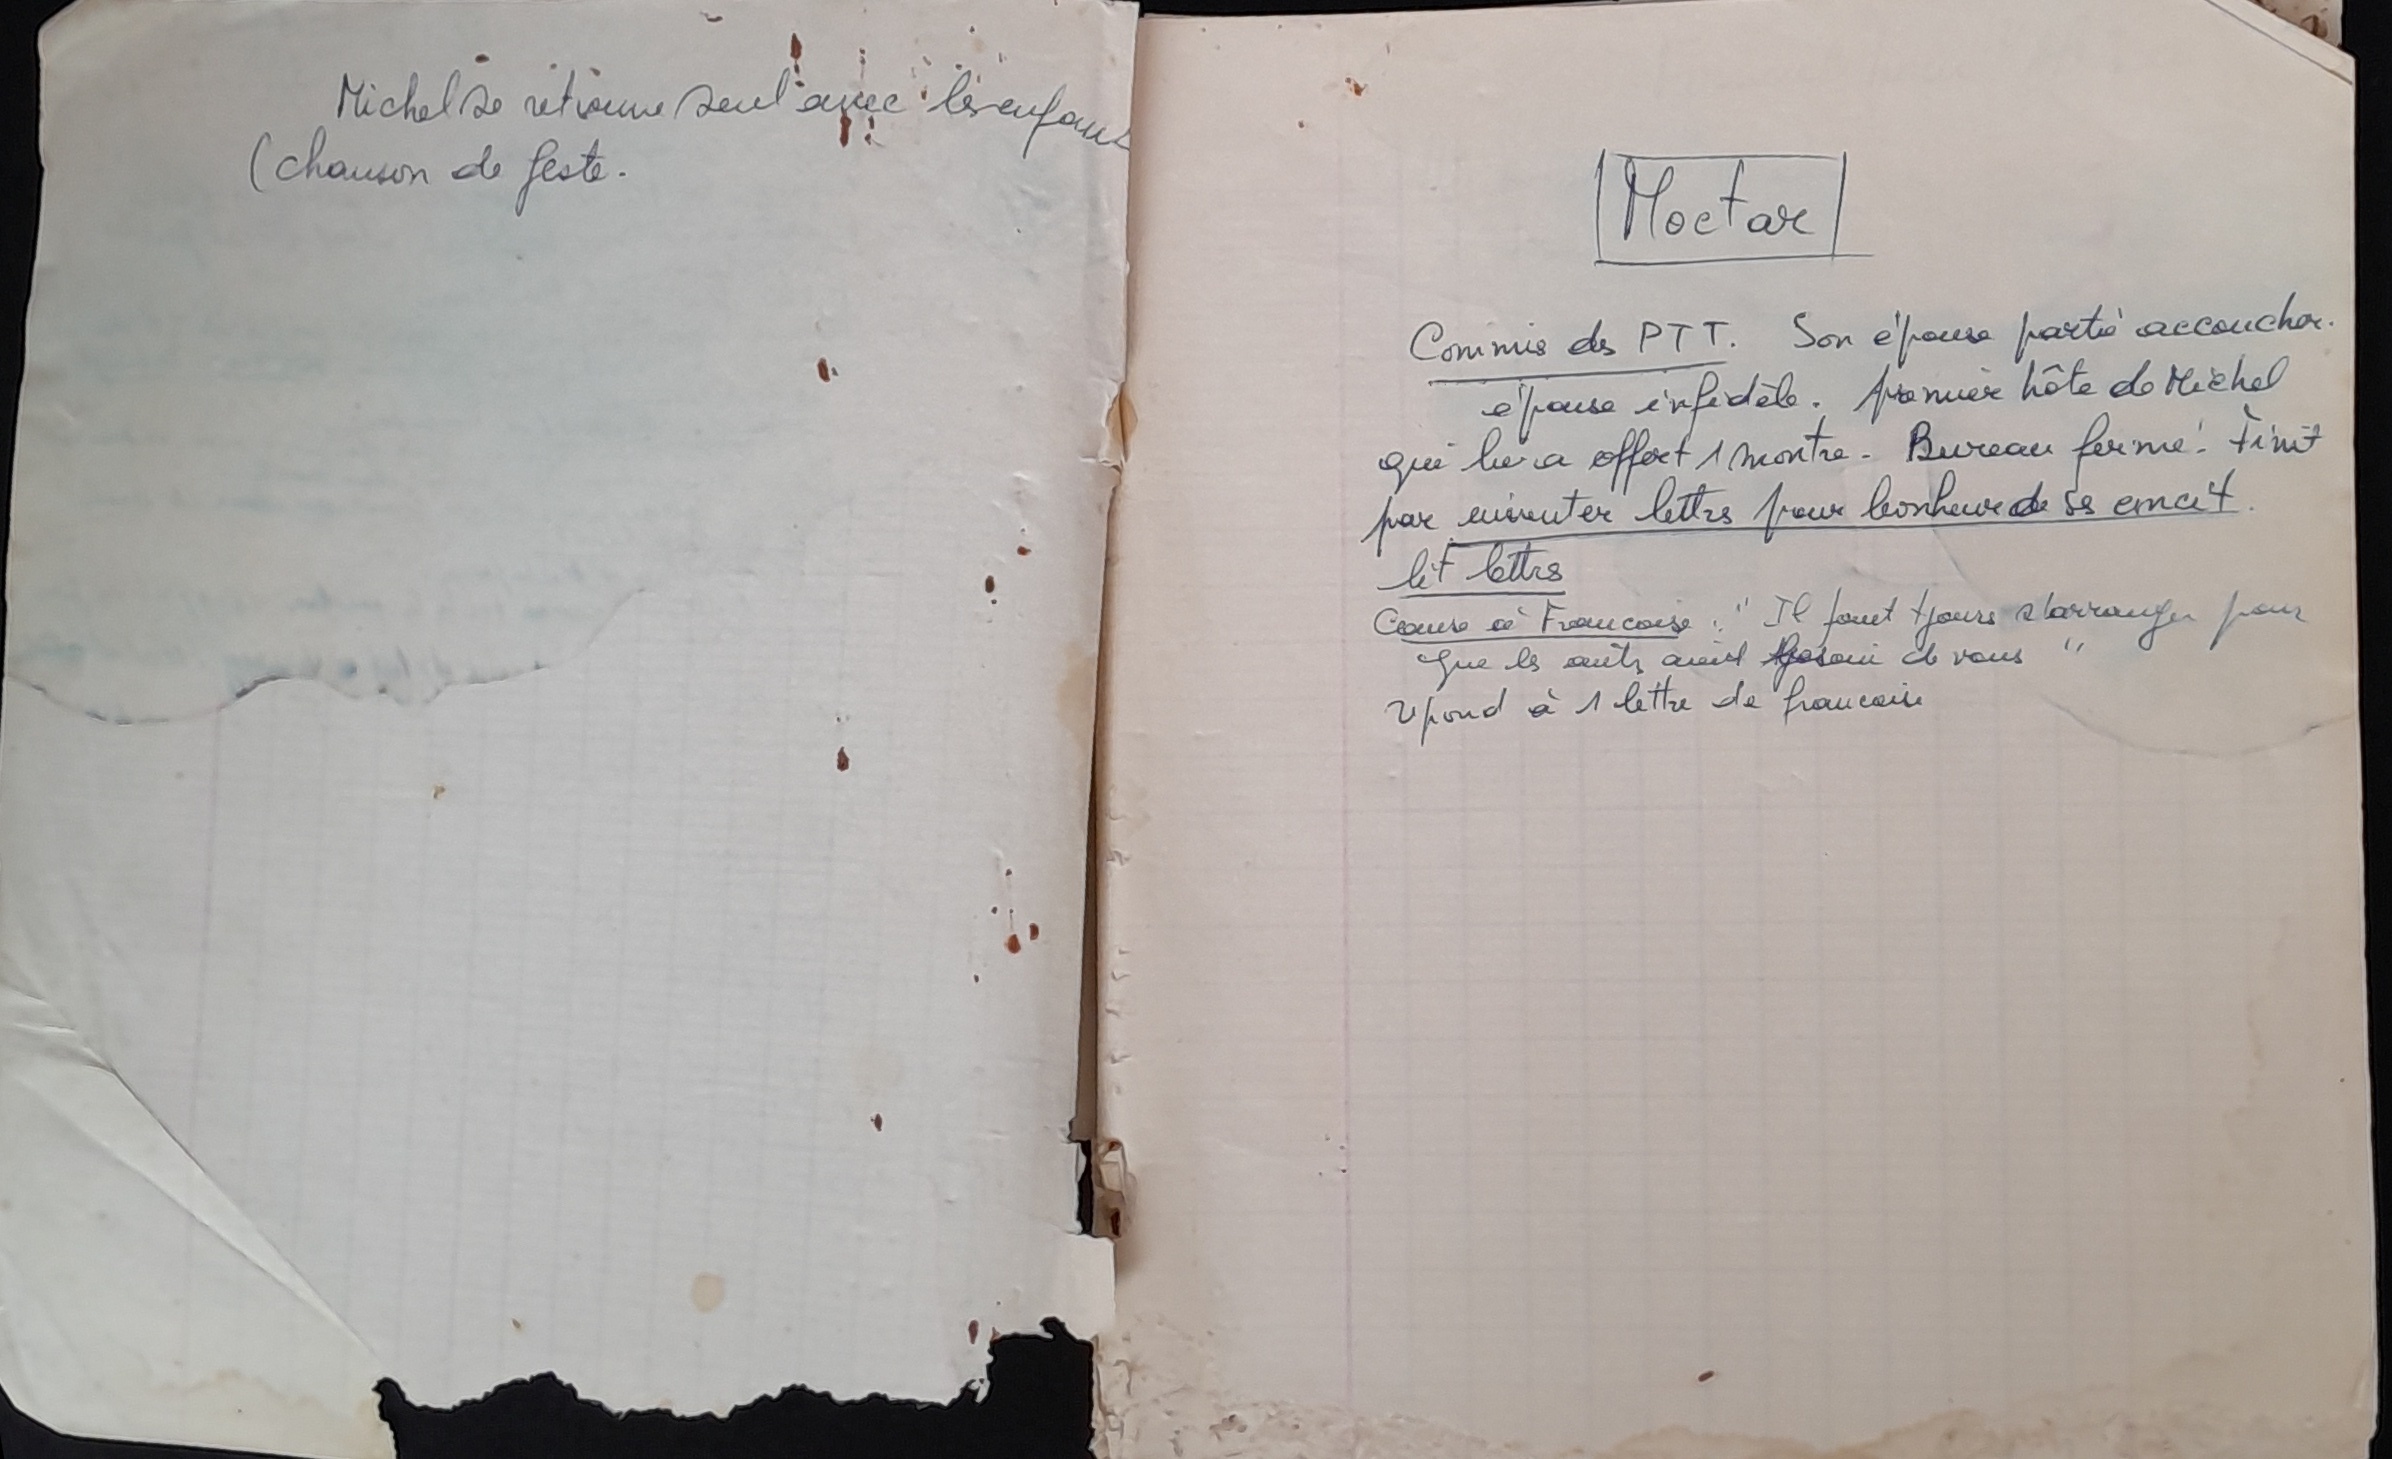 Michel se retrouve seul avec les enfants
(chanson de geste.
Moctar
Commis des PTT. Son épouse partie accoucher.
épouse infidèle. premier hôte de Michel
qui lui a offert 1 montre. Bureau fermé. Finit
par inventer lettres pour bonheur de ses
lit lettres
Cause à Francoise : " Il faut tjours s'arranger pour
que les autrs aient besoin de vous "
répond à 1 lettre de francoise